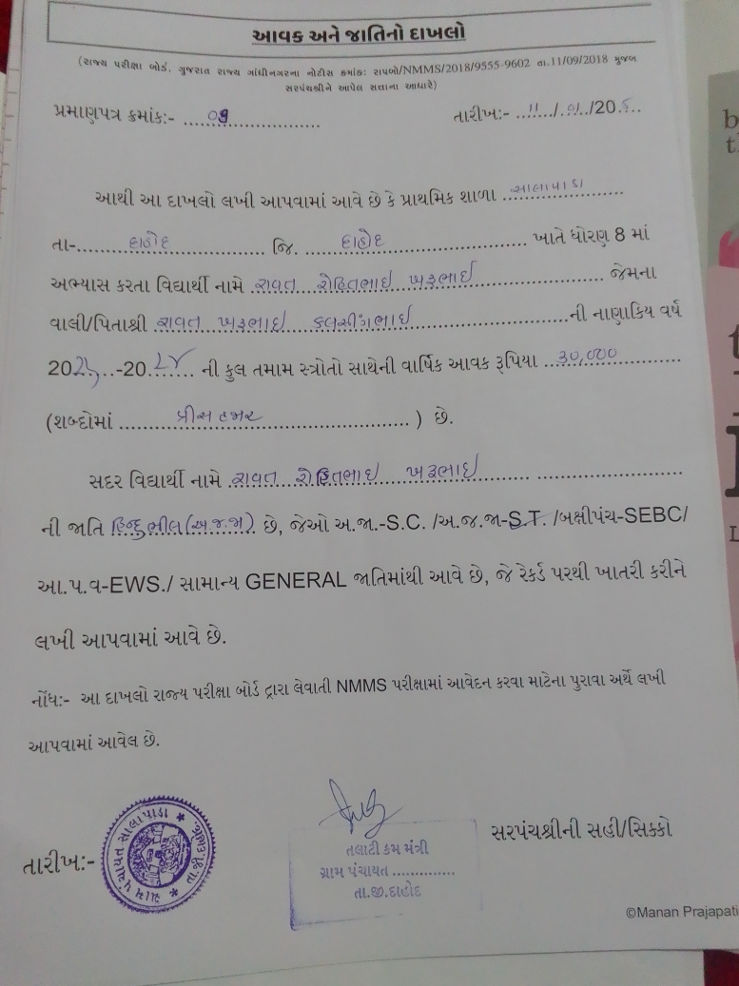 આવક અને જાતિનો દાખલો
(રાજ્ય પરીક્ષા બોર્ડ, ગુજરાત રાજ્ય ગાંધીનગરના નોટીસ ક્રમાંક: રાપબો/NMMS/2018/9555-9602 તા.11/09/2018 મુજબ
સરપંચશ્રીને આપેલ સત્તાના આધારે)
પ્રમાણપત્ર ક્રમાંક:- ..................... તારીખ:- ..11../..../20....
આથી આ દાખલો લખી આપવામાં આવે છે કે પ્રાથમિક શાળા સાલાપાડા
તા-..... દાહોદ ..... જિ. ..... દાહોદ ..... ખાતે ધોરણ 8 માં
અભ્યાસ કરતા વિદ્યાર્થી નામે રાવત રોહિતભાઇ ખરૂભાઇ ..... જેમના
વાલી/પિતાશ્રી રાવત ખરૂભાઇ કલસીંગભાઇ .....ની નાણાકિય વર્ષ
20.23..-20.24.. ની કુલ તમામ સ્ત્રોતો સાથેની વાર્ષિક આવક રૂપિયા ...30,000.....
(શબ્દોમાં ..... ત્રીસ હજાર ..... ) છે.
સદર વિદ્યાર્થી નામે રાવત રોહિતભાઇ ખરૂભાઇ .....
ની જાતિ હિન્દુ ભીલ (અ.જ.જા) છે, જેઓ અ.જા.-S.C. /અ.જ.જા-S.T. /બક્ષીપંચ-SEBC/
આ.પ.વ-EWS./ સામાન્ય GENERAL જાતિમાંથી આવે છે, જે રેકર્ડ પરથી ખાતરી કરીને
લખી આપવામાં આવે છે.
નોંધ:- આ દાખલો રાજ્ય પરીક્ષા બોર્ડ દ્રારા લેવાતી NMMS પરીક્ષામાં આવેદન કરવા માટેના પુરાવા અર્થે લખી
આપવામાં આવેલ છે.
ગ્રામ પંચાયત સાલાપાડા
તલાટી કમ મંત્રી
ગ્રામ પંચાયત ..............
તા.જી.દાહોદ
સરપંચશ્રીની સહી/સિક્કો
તારીખ:-
©Manan Prajapati